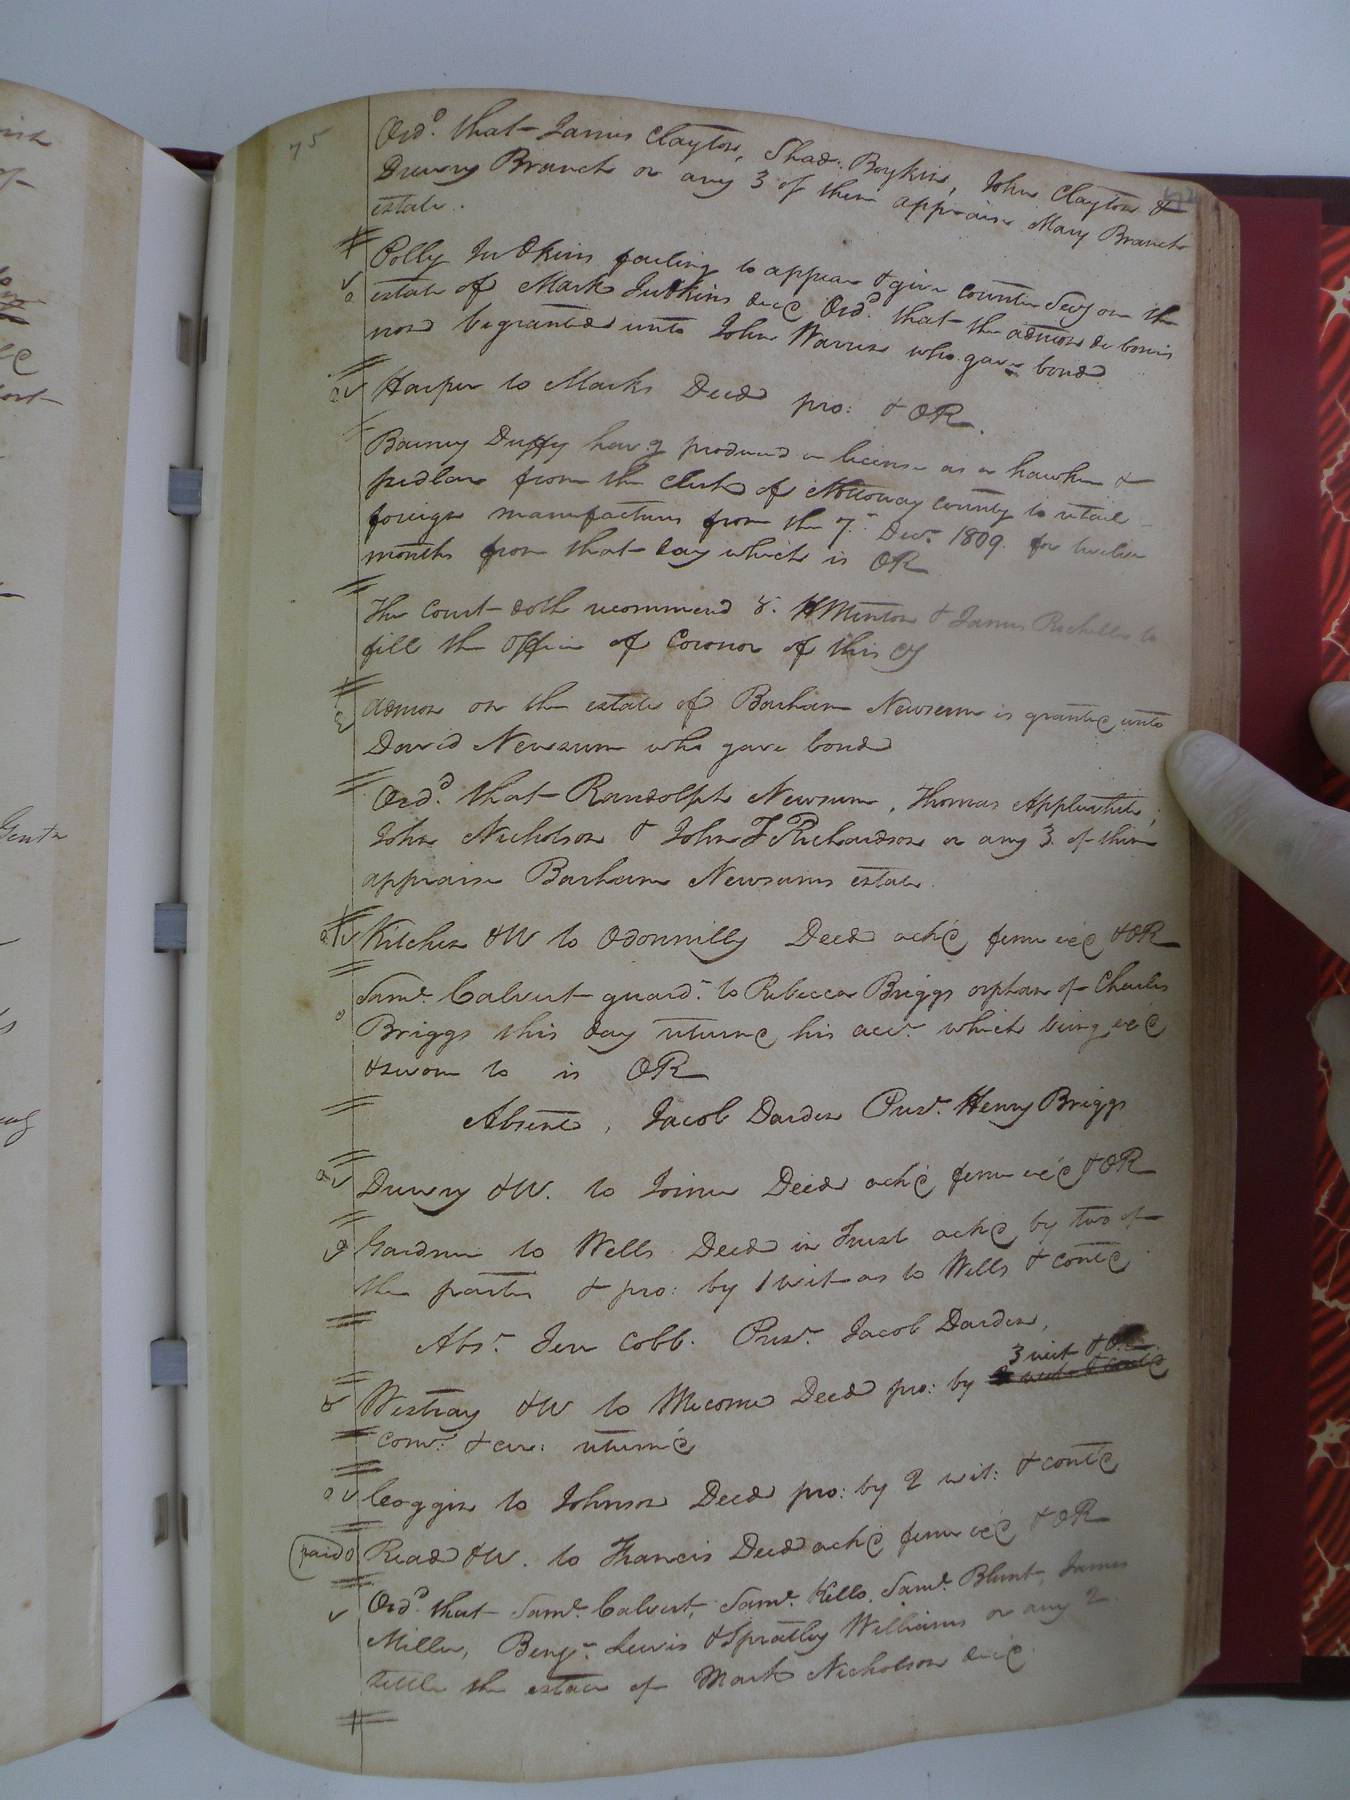 75
Ord.d that James Clayton, Shad: Boykin, John Clayton &
Drewry Branch or any 3 of them appraise Mary Branch
estate.
Polly Judkins failing to appear & give counter Secy on the
estate of Mark Judkins decd Ord.d that the admon de bonis
non be granted unto John Warren who gave bond
Harper to Marks Deed pro: & OR.
Barney Duffy hav.g produced a license as a hawker &
pedlar from the Clerk of Nottoway county to retail
foreign manufactures from the 7.th Decr. 1809. for twelve
months from that day which is OR
The Court doth recommend Minton & James Rochelle to
fill the office of Coronor of this Cy
admon on the estate of Barham Newsum is granted unto
David Newsum who gave bond
Ord.d that Randolph Newsum, Thomas Applewhite,
John Nicholson & John T Richardson or any 3 of them
appraise Barham Newsums estate.
Kitchen &W to Odonnilly Deed ackd feme exd & OR
Saml. Calvert guardn. to Rebecca Briggs orphan of Charles
Briggs this day returned his acct. which being exd
& sworn to is OR
Absent, Jacob Darden Prest. Henry Briggs
Drewry &W. to Joiner Deed ackd feme exd & OR
Gardner to Wells Deed in Trust ackd by two of
the parties & pro: by 1 wit as to Wells & contd
Abst. Jer Cobb. Prest. Jacob Darden,
3 wit & OR
Westray &W to Mecome Deed pro: by
com: & cer: returnd
Coggin to Johnson Deed pro: by 2 wit: & contd
paid Read &W. to Francis Deed ackd feme exd & OR
Ord.d that Saml. Calvert, Saml. Kello, Saml. Blunt, James
Miller, Benjn. Lewis & Spratley Williams or any 2
settle the estate of Mark Nicholson decd